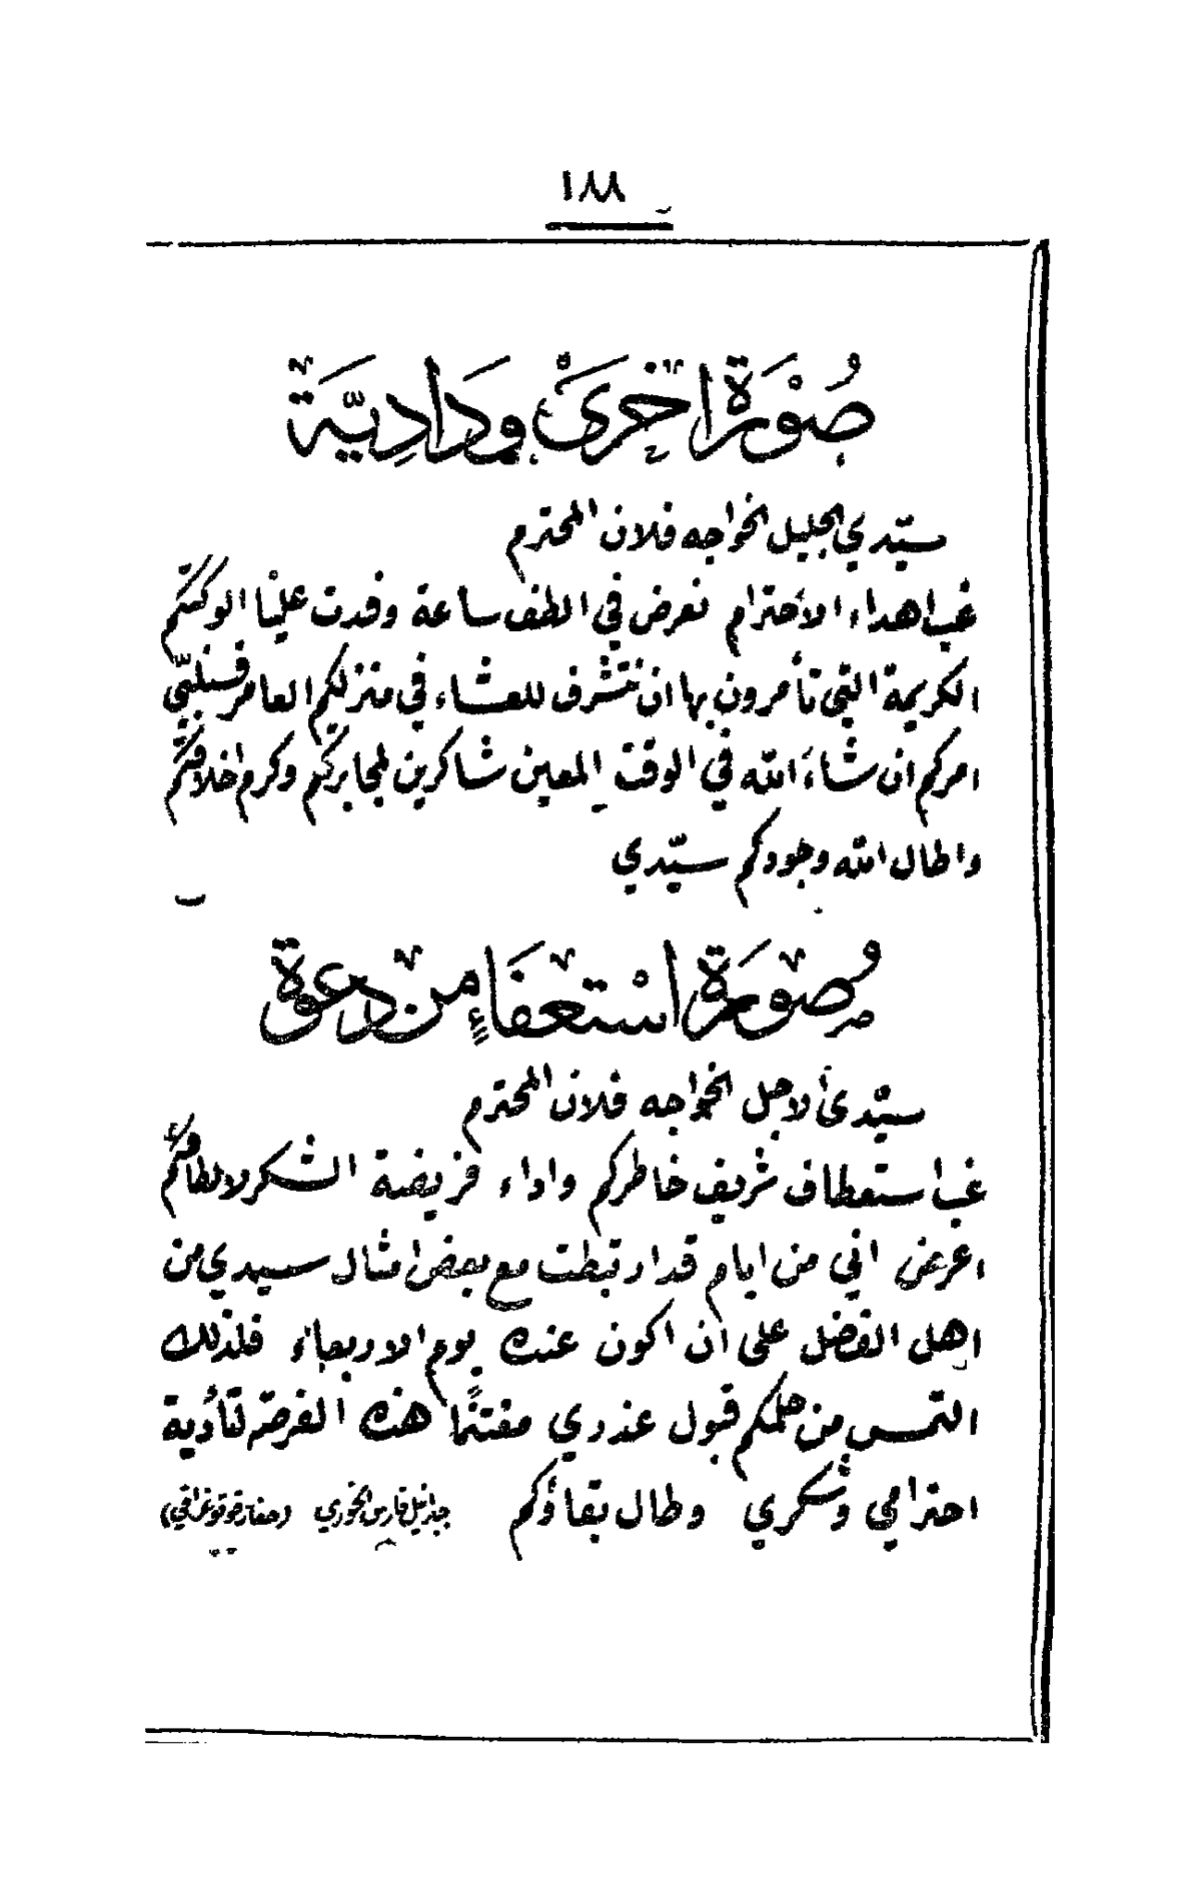 ١٨٨
صُوْرَة اخرَىْ وِدَادِيَّة
سيّدي الجليل الخواجه فلان المحترم
غب اهداء الاحترام نعرض في الطف ساعة وفدت علينا الوكتكم
الكريمة التي تأمرون بها ان نتشرف للعشاء في منزلكم العامر فسنلبّي
امركم ان شاء الله في الوقت المعين شاكرين لمجابركم وكرم اخلاقكم
واطال الله وجودكم سيّدي
صُورَة اسْتعفَاءٍ من دعوة
سيّدي الاجل الخواجه فلان المحترم
غب استعطاف شريف خاطركم واداء فريضة الشكر لالطافكم
اعرض اني من ايام قد ارتبطت مع بعض امثال سيدي من
اهل الفضل على ان اكون عنده يوم الاربعاء فلذلك
التمس من حلمكم قبول عذري مغتنمًا هذه الفرصة لتأدية
احترامي وشكري وطال بقاؤكم فارس الخوري